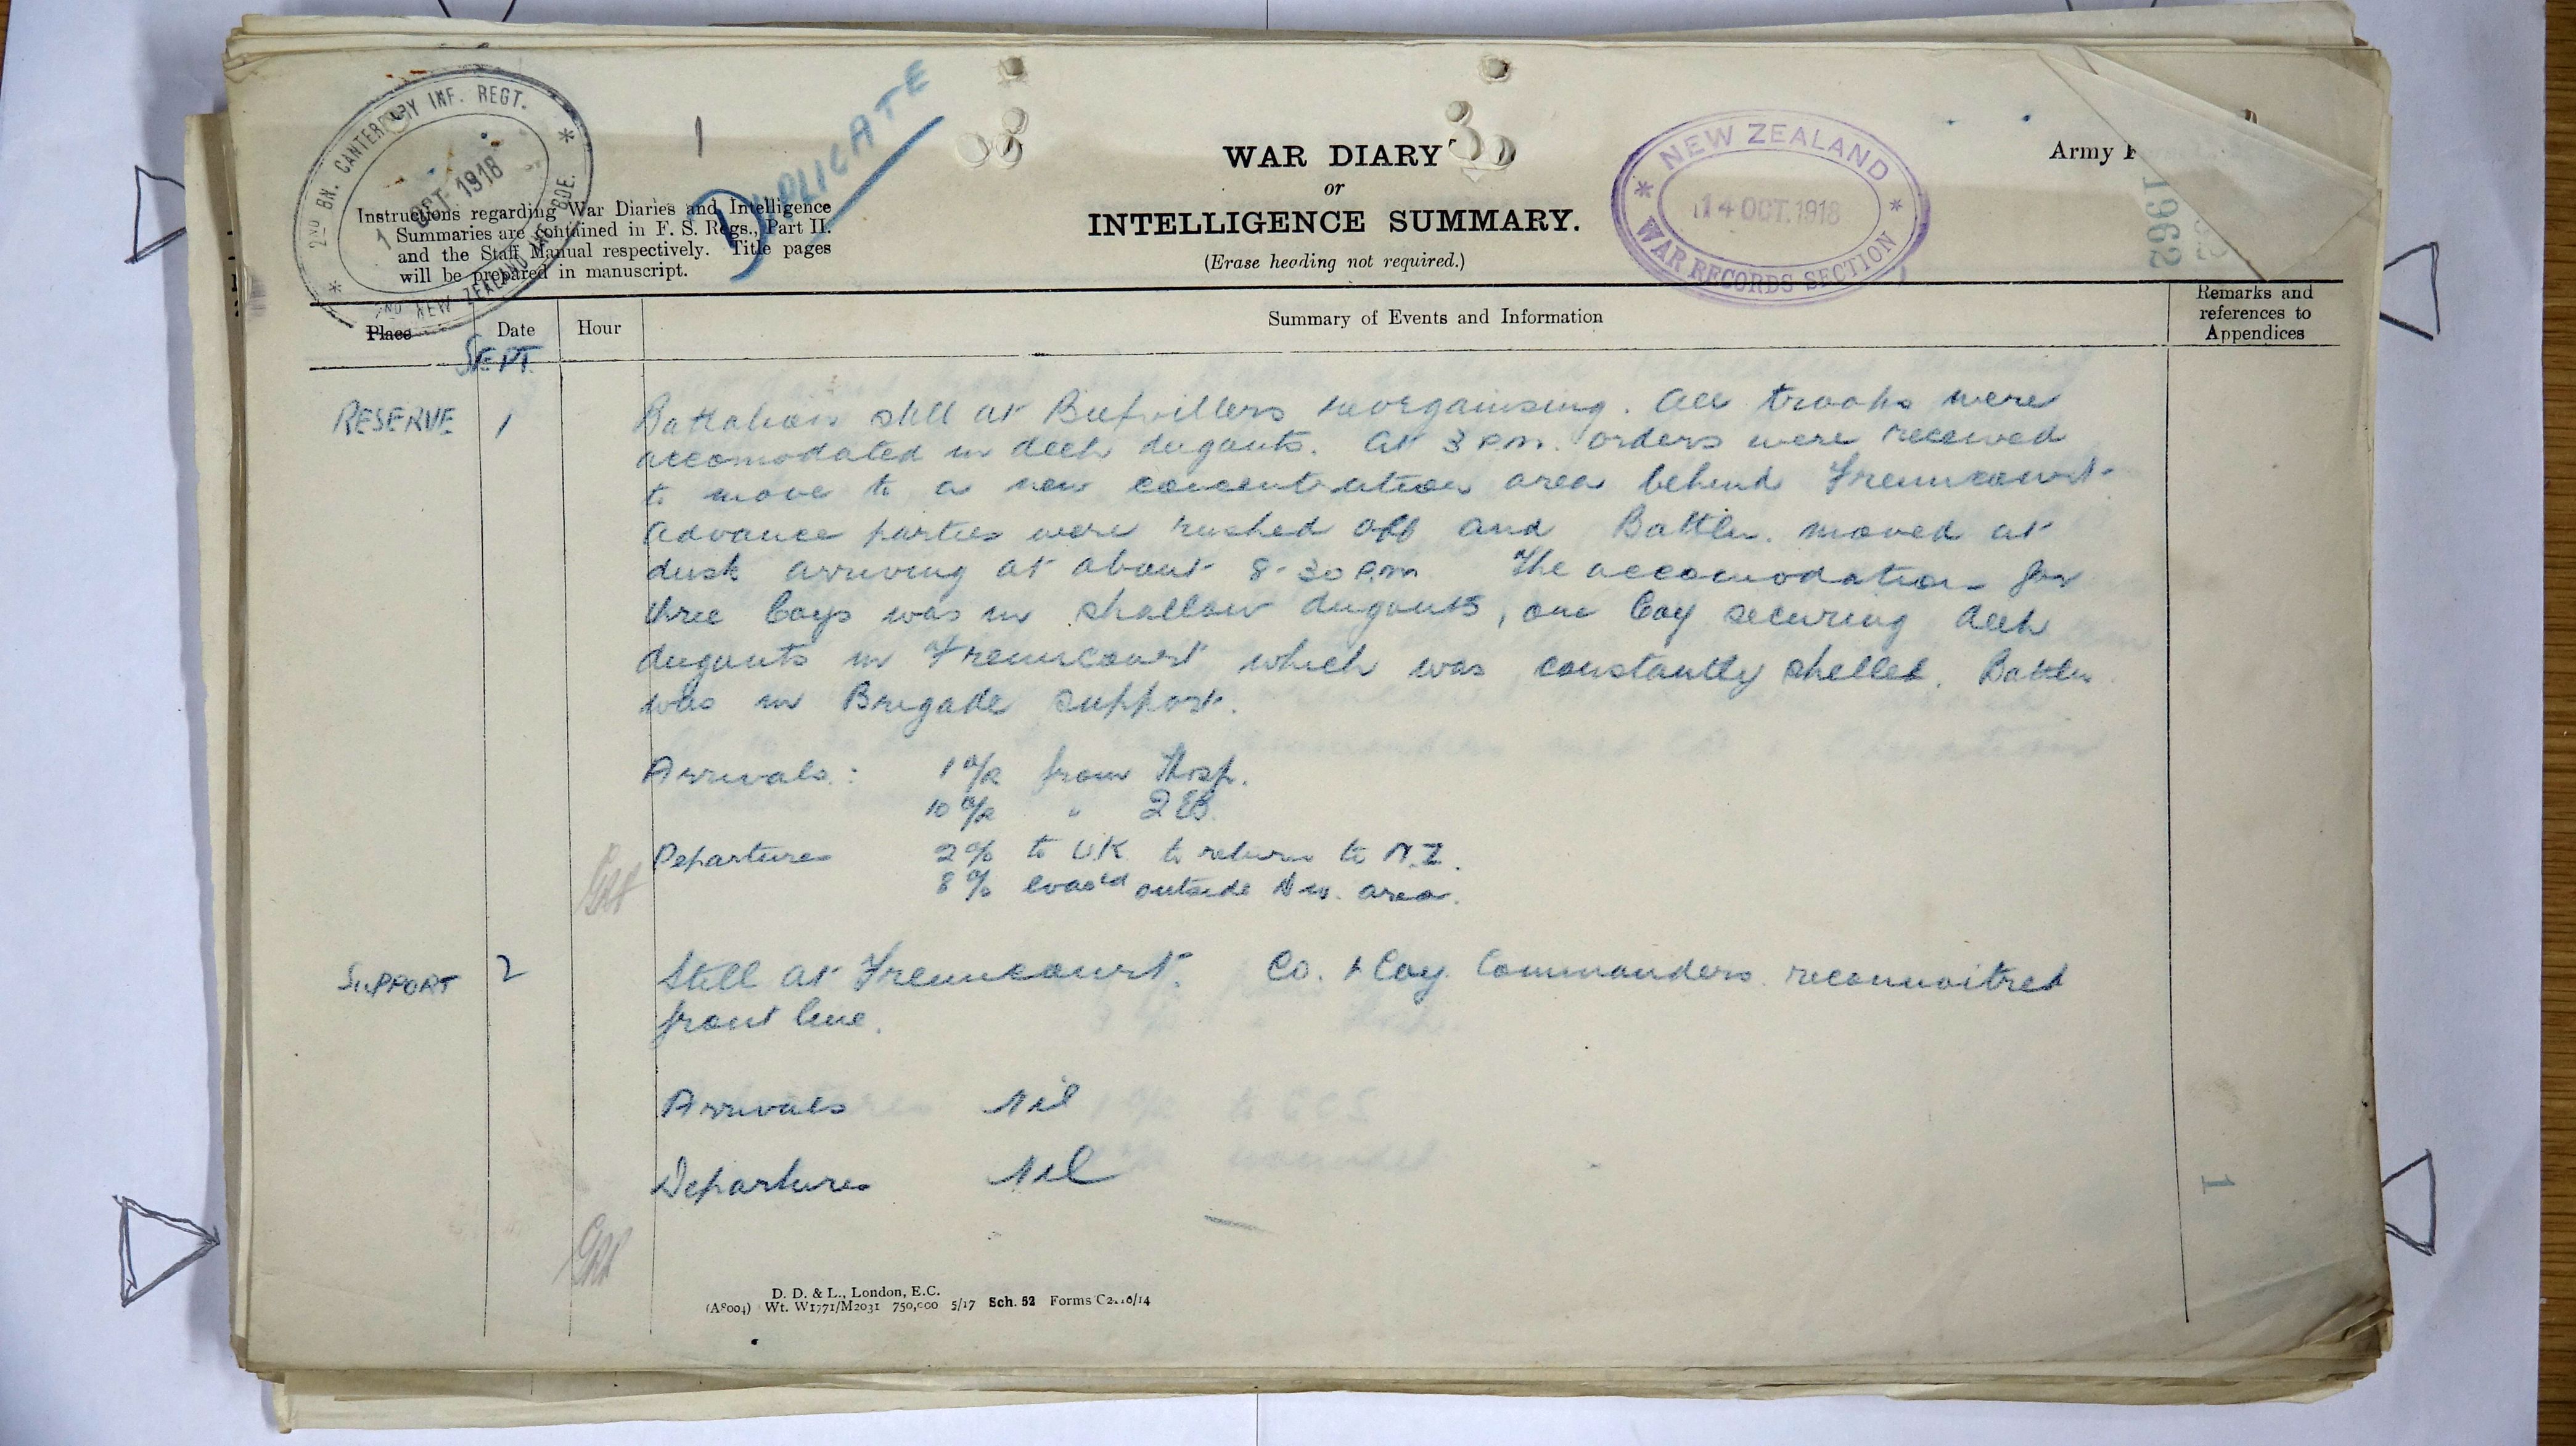 2ND BN. CANTERBURY INF. REGT.
1 OCT 1918
2ND NEW ZEALAND INF. BDE.
1
DUPLICATE
WAR DIARY
or
INTELLIGENCE SUMMARY.
(Erase heading not required.)
NEW ZEALAND
14 OCT. 1918
WAR RECORDS SECTION
Army F
1962
Instructions regarding War Diaries and Intelligence
Summaries are contained in F. S. Regs., Part II.
and the Staff Manual respectively. Title pages
will be prepared in manuscript.
Place Date Hour Summary of Events and Information Remarks and
references to
Appendices
SEPT.
RESERVE 1 Battalion still at Biefvillers reorganising. All troops were
accomodated in deep dugouts. At 3 P.M. orders were received
to move to a new concentration area behind Fremicourt.
Advance parties were rushed off and Battln. moved at
dusk arriving at about 8-30 P.M. The accomodation for
three Coys was in shallow dugouts, one Coy securing deep
dugouts in Fremicourt which was constantly shelled. Battln
was in Brigade support.
Arrivals: 1 O/R from Hosp.
10 O/R "
Departures 2 O/R to U.K. to return to N.Z.
8 O/R evac'd outside Div. area.
SUPPORT 2 Still at Fremicourt. C.O. & Coy Commanders reconnoitred
front line.
Arrivals Nil
Departures Nil
D. D. & L., London, E.C.
(A8004) Wt. W1771/M2031 750,000 5/17 Sch. 52 Forms C2118/14
1